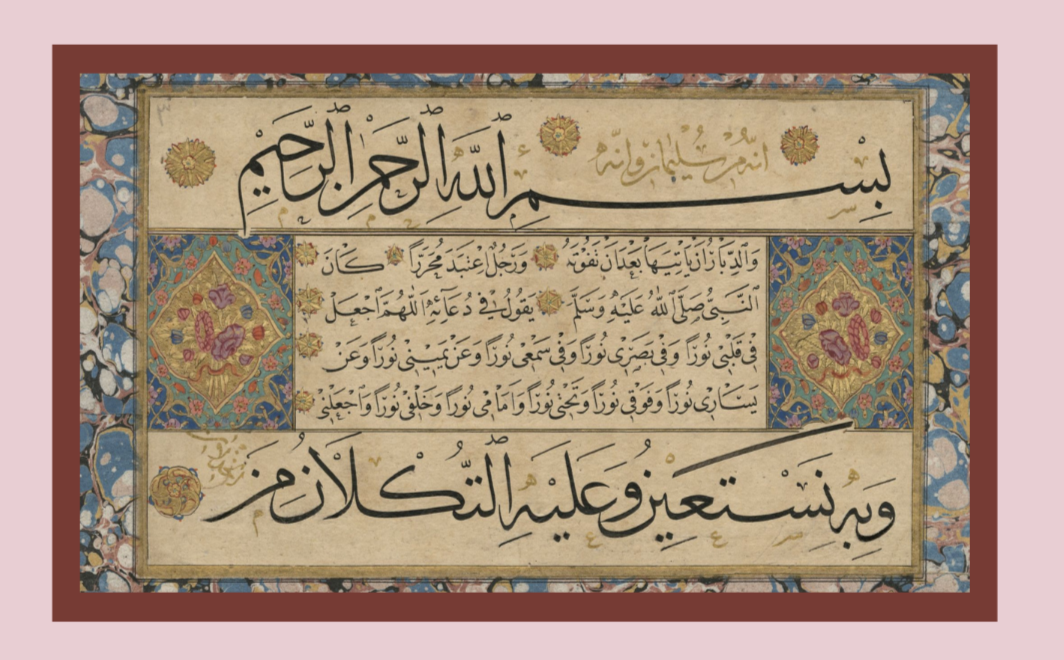 انه من سليمان وانه
بِسْمِ اللهِ الرَّحْمٰنِ الرَّحِيمِ
وَالدِّبَارُ اَنْ يَاْتِيَهَا بَعْدَ اَنْ تَفُوتَهُ وَرَجُلٌ اعْتَبَدَ مُحَرَّرًا كَانَ
النَّبِيُّ صَلَّى اللهُ عَلَيْهِ وَسَلَّمَ يَقُولُ فِي دُعَآئِهِ اَللّٰهُمَّ اجْعَلْ
فِي قَلْبِي نُورًا وَفِي بَصَرِي نُورًا وَفِي سَمْعِي نُورًا وَعَنْ يَمِينِي نُورًا وَعَنْ
يَسَارِي نُورًا وَفَوْقِي نُورًا وَتَحْتِي نُورًا وَاَمَامِي نُورًا وَخَلْفِي نُورًا وَاجْعَلْنِي
وَبِهِ نَسْتَعِينُ وَعَلَيْهِ التُّكْلَانُ مِنْ